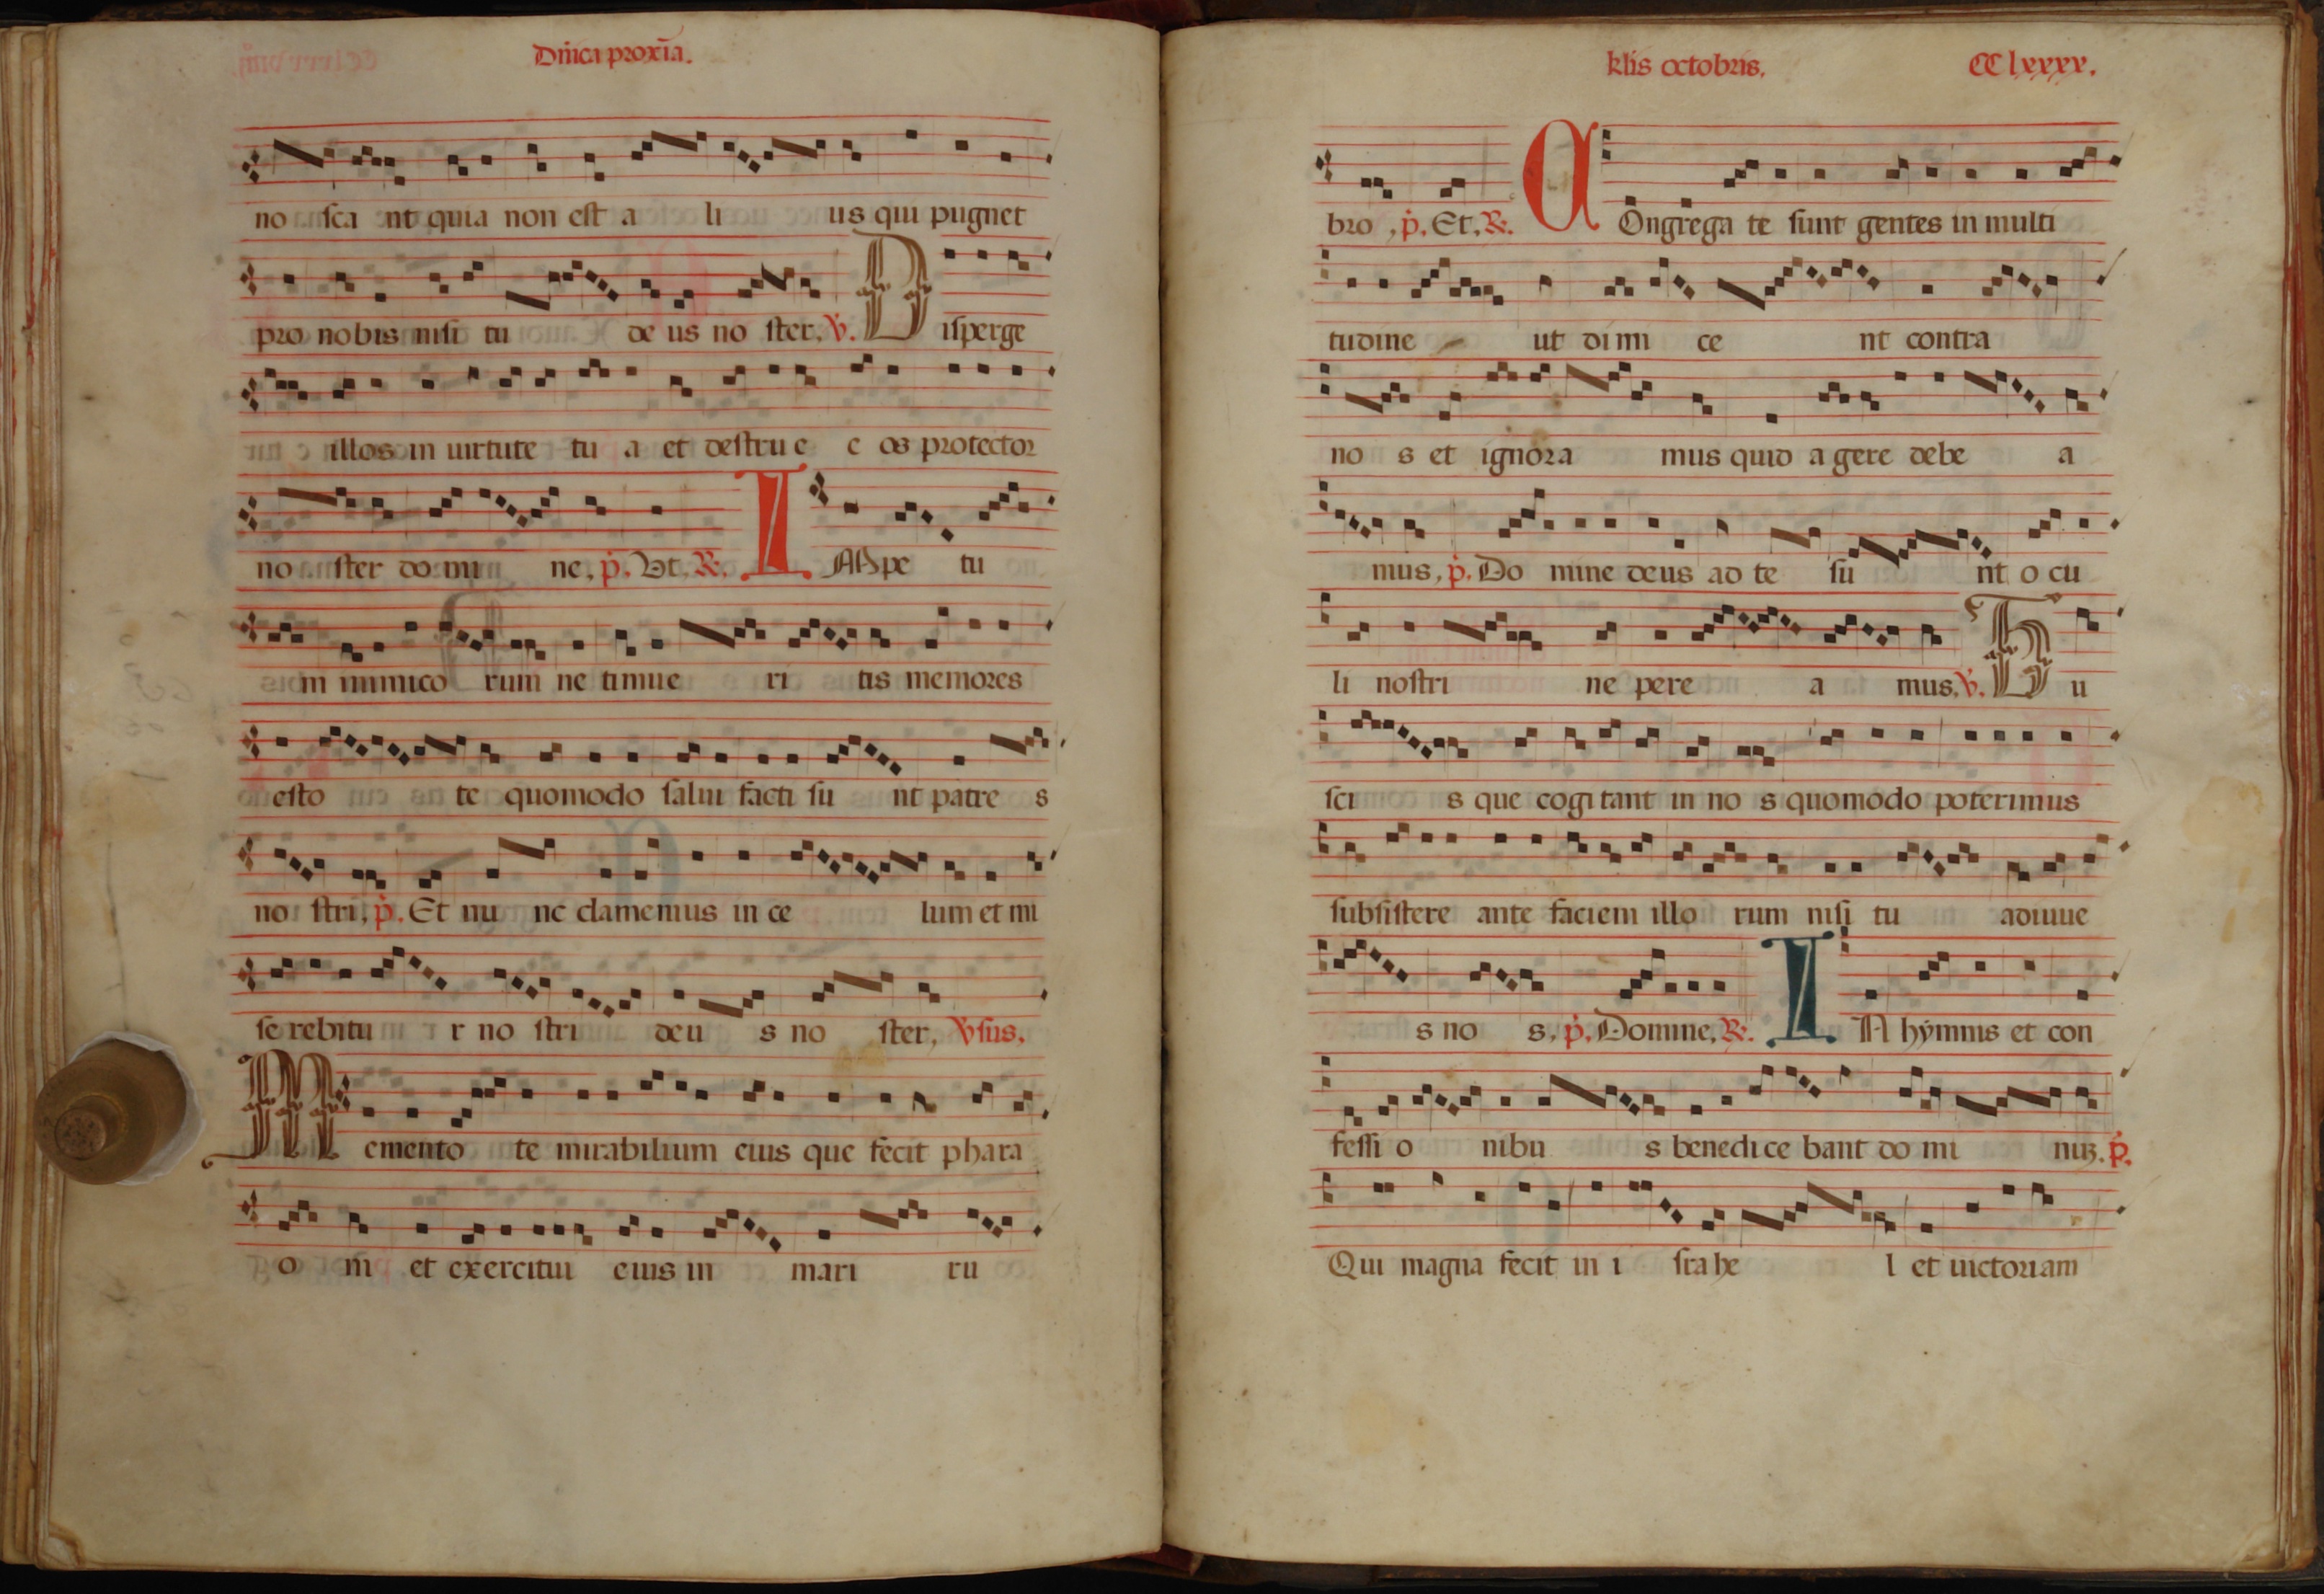 Dnica proxia.
no sca nt quia non est a li us qui pugnet
pro nobis nisi tu de us no ster. V. Disperge
illos in uirtute tu a et destru e e os protector
no ster do mi ne, p. Ut, R. IMpe tu
m inimico rum ne timue ri tis memores
esto te quomodo salui facti su nt patre s
no stri, p. Et nu nc clamemus in ce lum et mi
se rebitu r no stri deu s no ster, Vsus,
Memento te mirabilium eius que fecit phara
o ni et exercitui eius in mari ru
klis octobris. CClxxxx.
bro, p. Et, R. COngrega te sunt gentes in multi
tudine ut dimi ce nt contra
no s et ignora mus quid a gere debe a
mus, p. Do mine deus ad te su nt o cu
li nostri ne pere a mus, V. Tu
sci s que cogi tant in no s quomodo poterimus
subsistere ante faciem illo rum nisi tu adiuue
s no s, p. Domine, R. IN hymnis et con
fessi o nibu s benedice bant do mi nuz. p.
Qui magna fecit in i srahe l et uictoriam